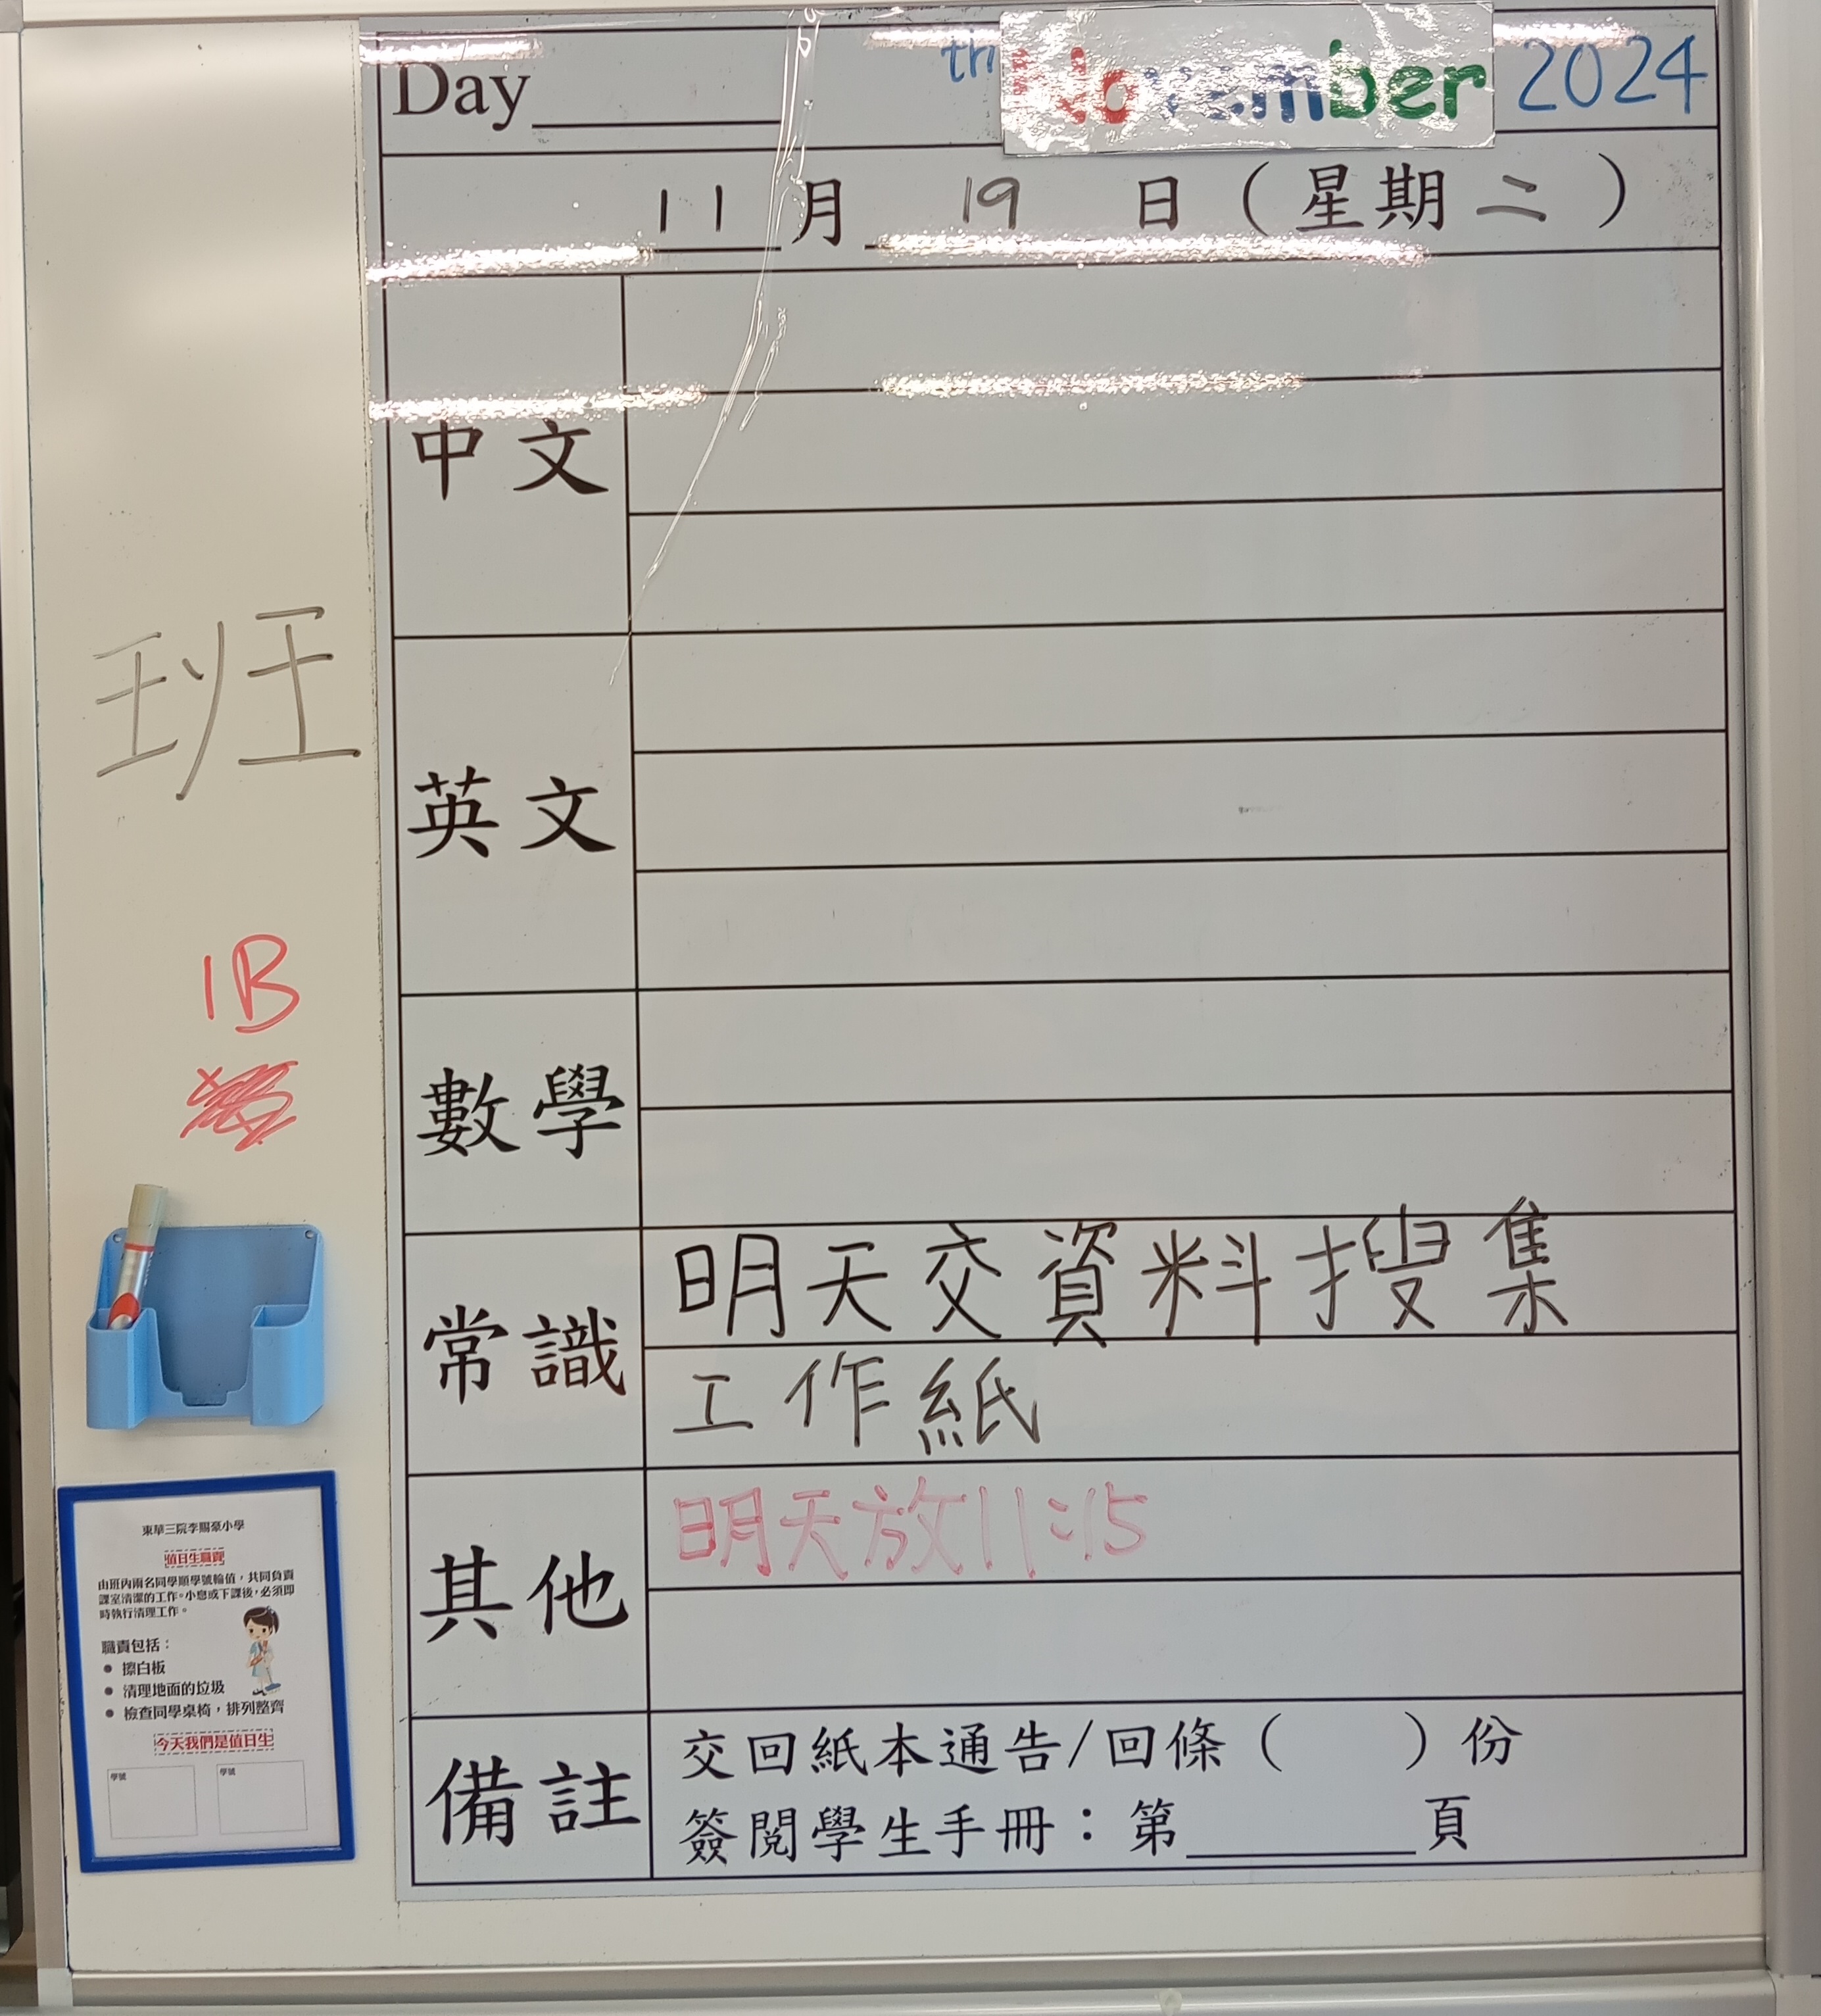 Day th November 2024
11月 19 日（星期二）
中文
英文
數學
常識
明天交資料搜集
工作紙
其他
明天放11:15
備註
交回紙本通告/回條（ ）份
簽閱學生手冊：第 頁
班
1B
東華三院李賜豪小學
值日生職責
由班內兩名同學順學號輪值，共同負責
課室清潔的工作。小息或下課後，必須即
時執行清理工作。
職責包括：
● 擦白板
● 清理地面的垃圾
● 檢查同學桌椅，排列整齊
今天我們是值日生
學號 學號